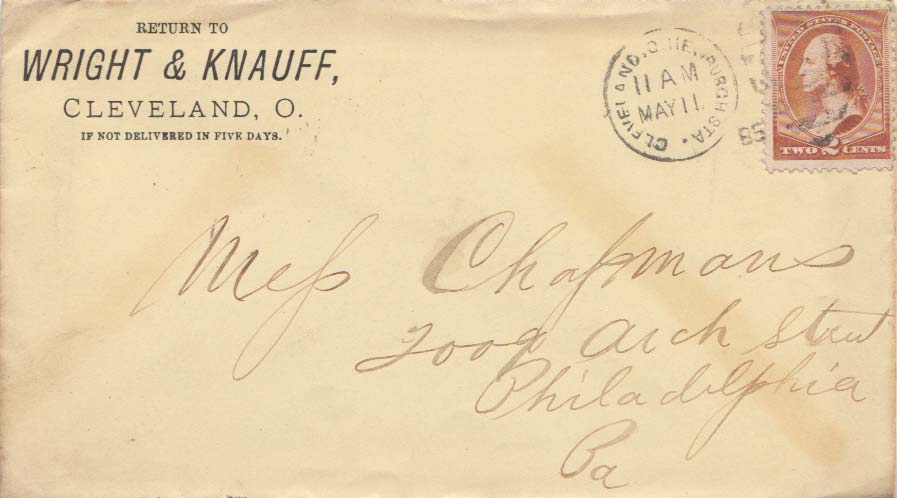 RETURN TO
WRIGHT & KNAUFF,
CLEVELAND, O.
IF NOT DELIVERED IN FIVE DAYS.
CLEVELAND, O. NEWBURGH STA.
11 AM
MAY 11
UNITED STATES POSTAGE
TWO 2 CENTS
Mess Chapmans
2009 Arch Street
Philadelphia
Pa